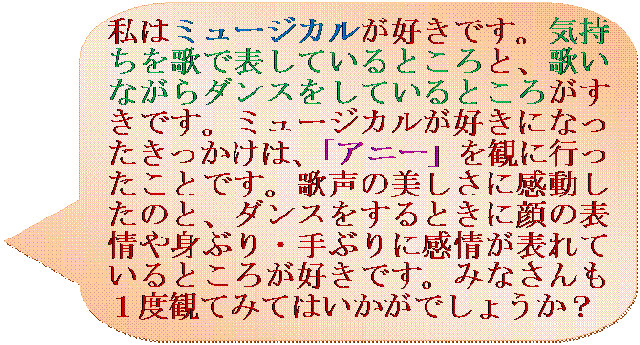 私はミュージカルが好きです。気持
ちを歌で表しているところと、歌い
ながらダンスをしているところがす
きです。ミュージカルが好きになっ
たきっかけは、「アニー」を観に行っ
たことです。歌声の美しさに感動し
たのと、ダンスをするときに顔の表
情や身ぶり・手ぶりに感情が表れて
いるところが好きです。みなさんも
１度観てみてはいかがでしょうか？